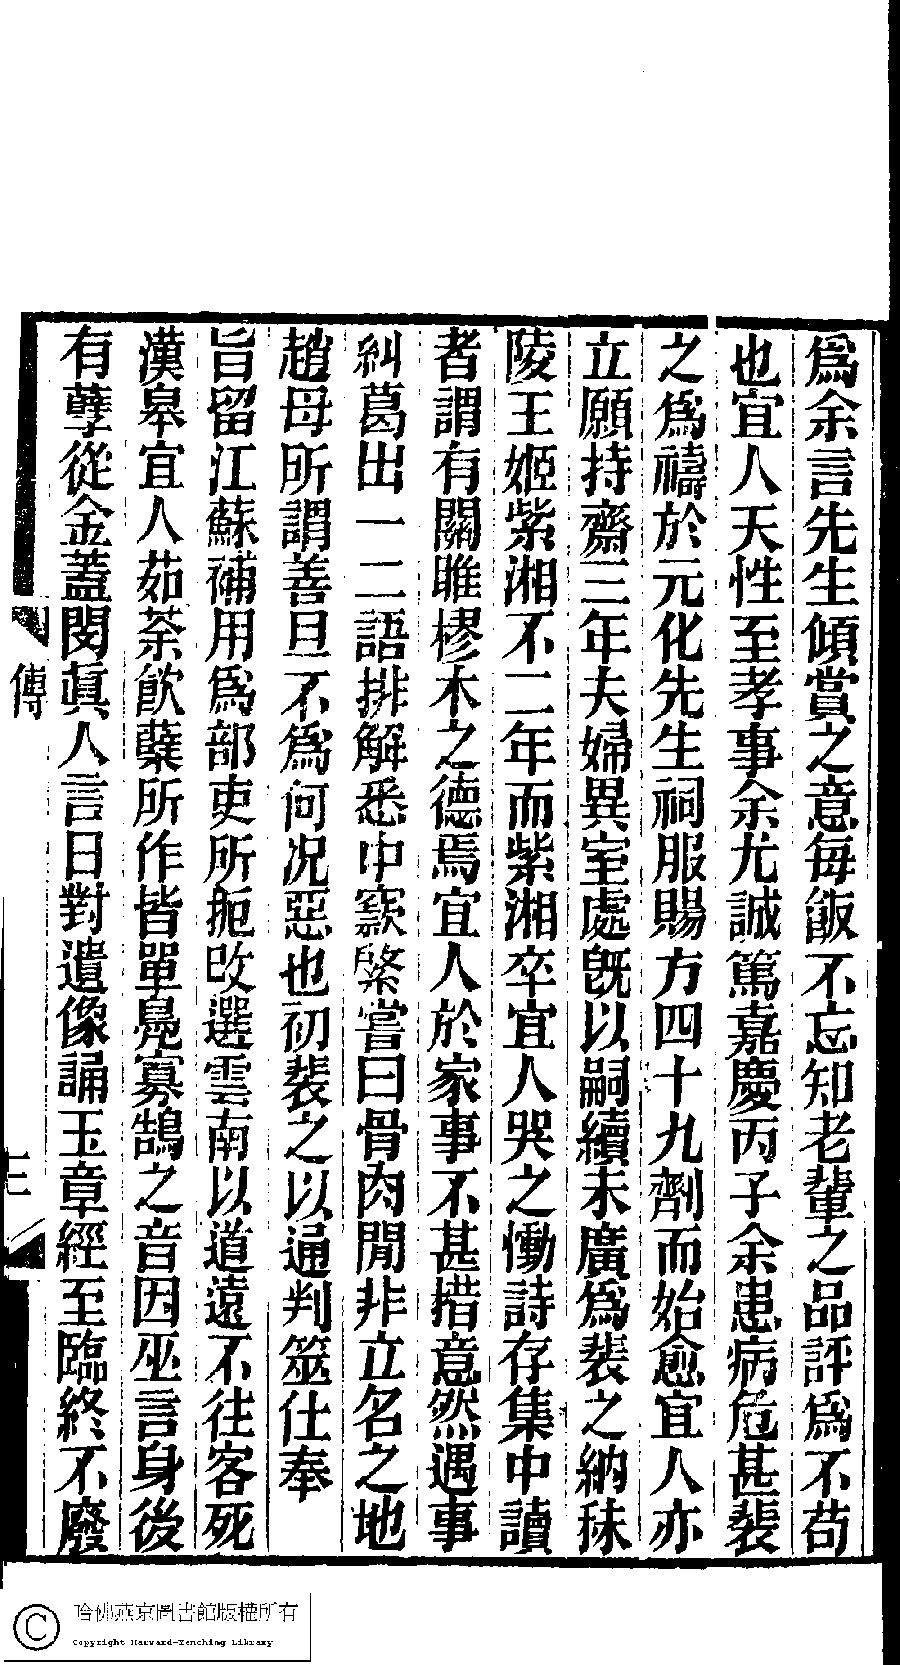 爲余言先生傾賞之意每飯不忘知老輩之品評爲不苟
也宜人天性至孝事余尤誠篤嘉慶丙子余患病危甚裴
之爲禱於元化先生祠服賜方四十九劑而始愈宜人亦
立願持齋三年夫婦異室處旣以嗣續未廣爲裴之納秣
陵王姬紫湘不二年而紫湘卒宜人哭之慟詩存集中讀
者謂有關雎樛木之德焉宜人於家事不甚措意然遇事
糾葛出一二語排解悉中窾綮嘗曰骨肉閒非立名之地
趙母所謂善且不爲何况惡也初裴之以通判筮仕奉
旨留江蘇補用爲部吏所扼改選雲南以道遠不往客死
漢皋宜人茹荼飮櫱所作皆單鳧寡鵠之音因巫言身後
有孽從金蓋閔眞人言日對遺像誦玉章經至臨終不廢
傳
三
哈佛燕京圖書館版權所有
Copyright Harvard-Yenching Library